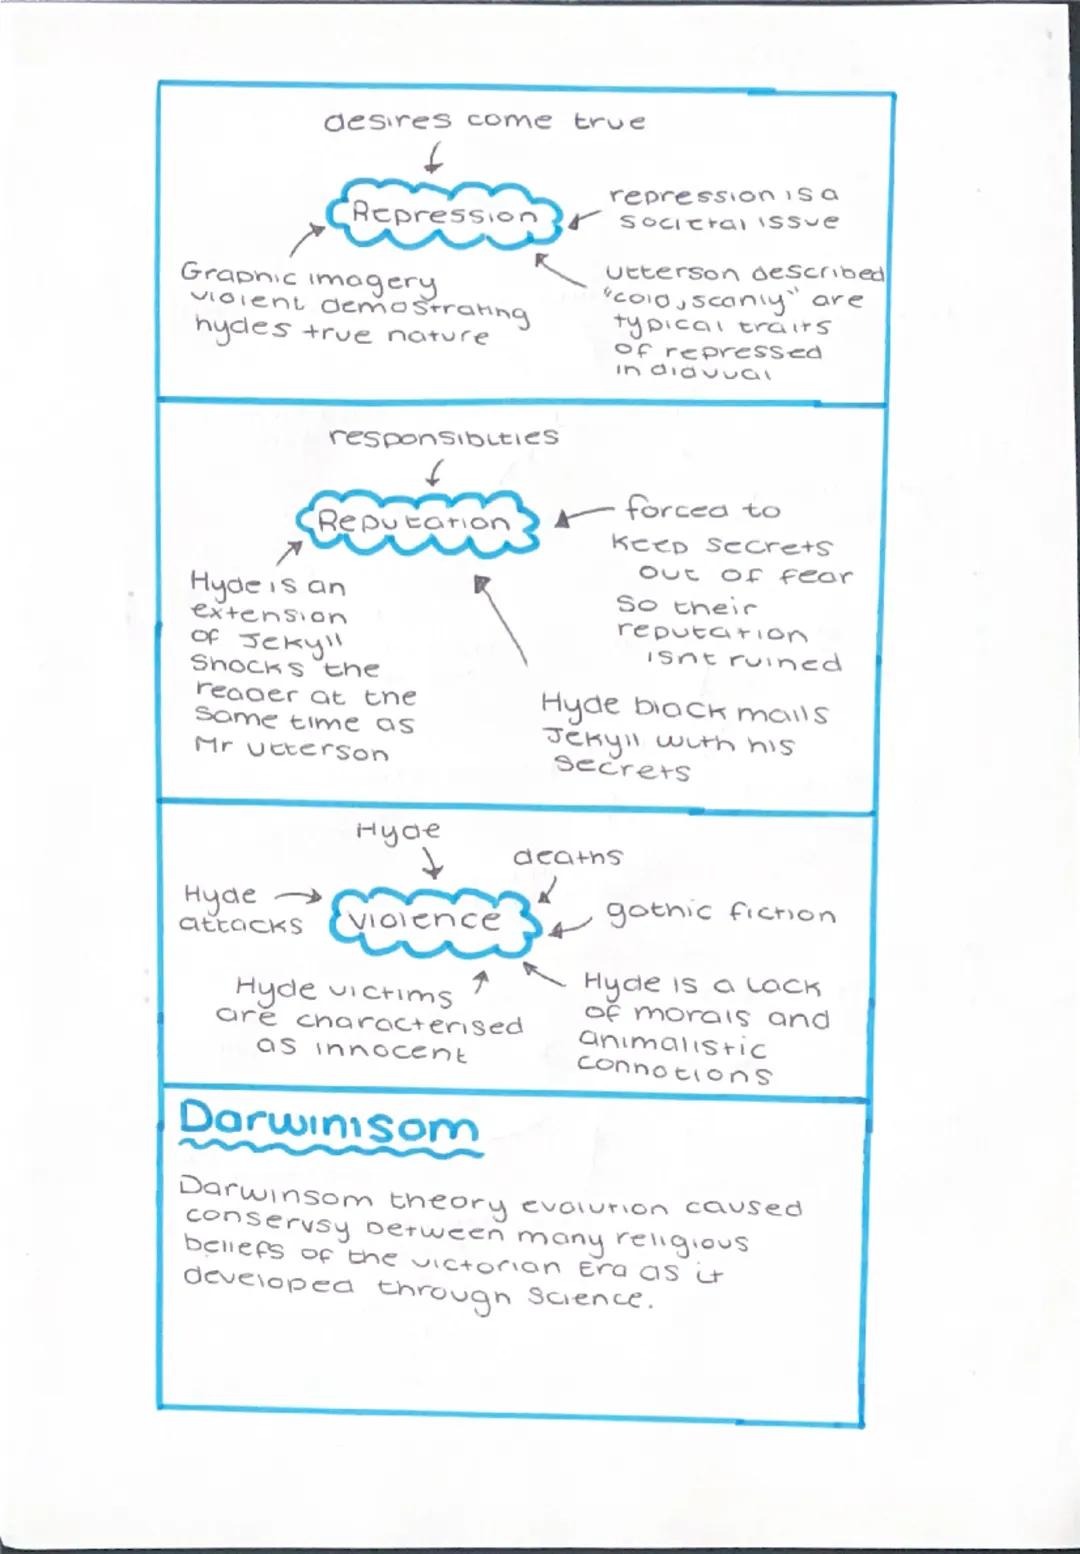 desires come true
Repression
repression is a
societal issue
Graphic imagery
violent demostrating
hydes true nature
Utterson described
"cold, scanly" are
typical traits
of repressed
individual
responsibities
Reputation
forced to
keep secrets
out of fear
so their
reputation
isnt ruined
Hyde is an
extension
of Jekyll
shocks the
reader at the
same time as
Mr Utterson
Hyde black mails
Jekyll with his
secrets
Hyde
deaths
Hyde
attacks
violence
gothic fiction
Hyde victims
are characterised
as innocent
Hyde is a lack
of morals and
animalistic
connotions
Darwinisom
Darwinsom theory evolution caused
conservsy between many religious
beliefs of the victorian Era as it
developed through science.